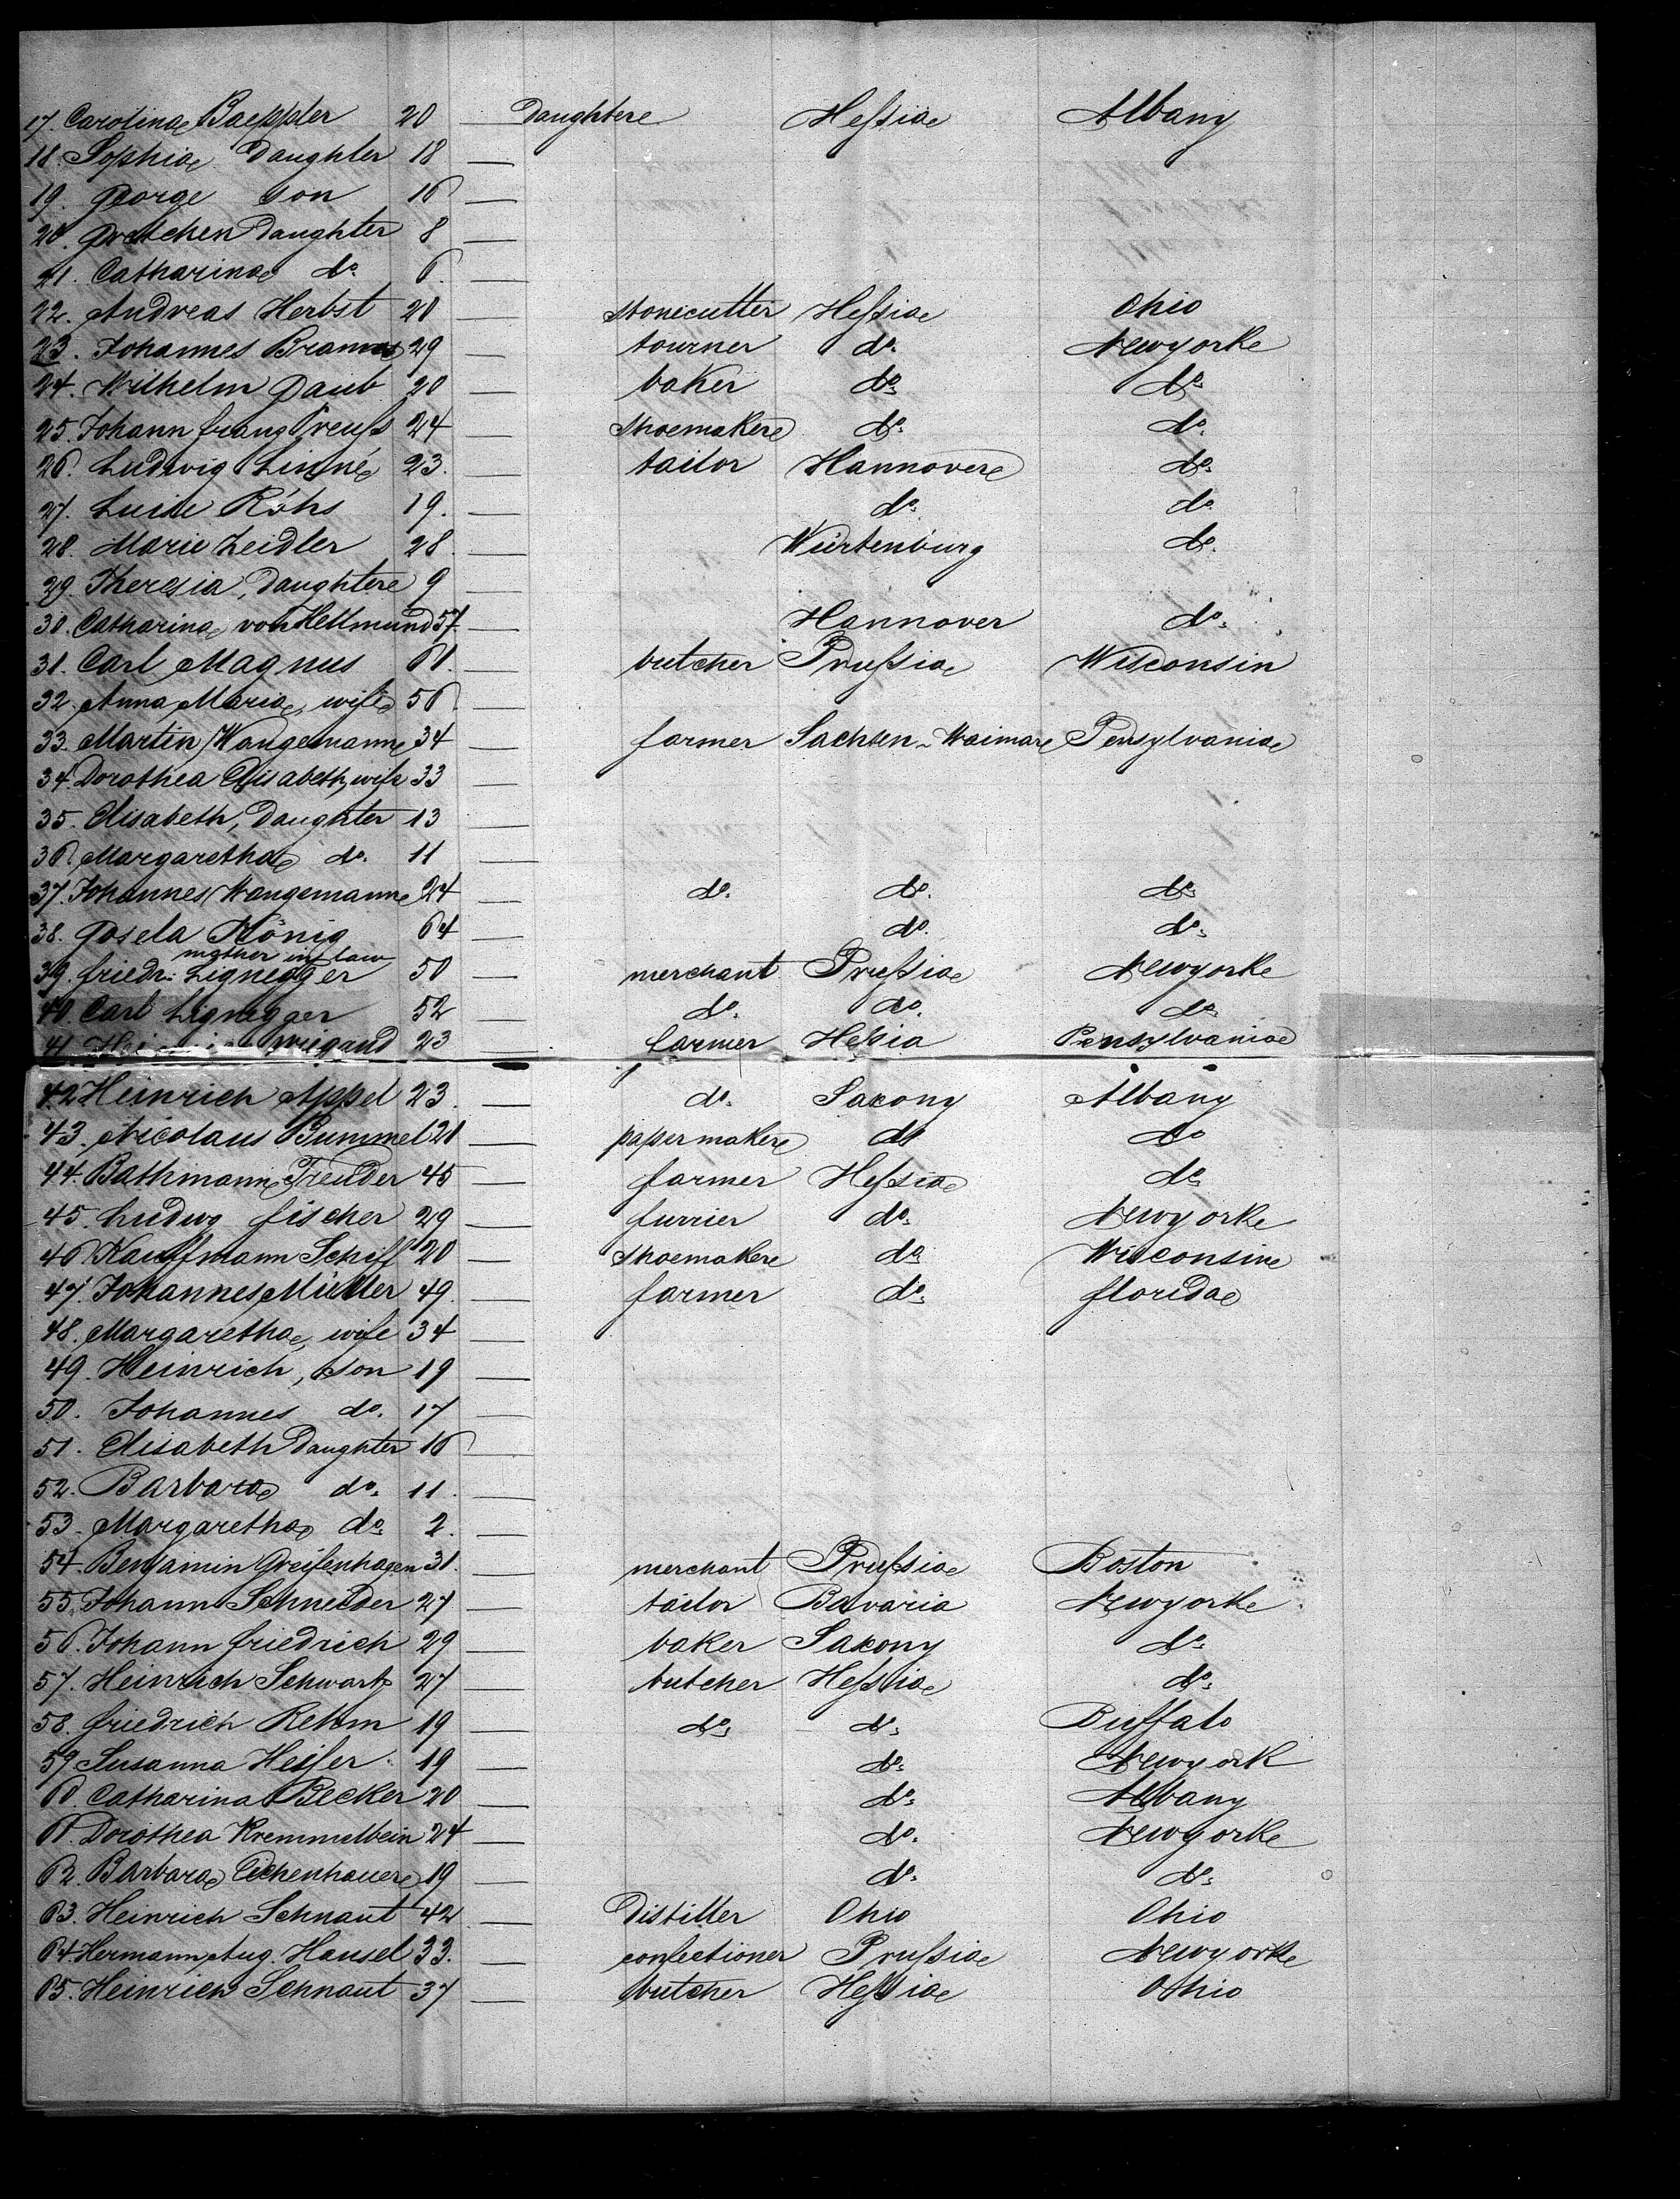 17. Carolina Baeppler 20 — Daughter Heßia Albany
18. Sophia Daughter 18 —
19. George son 16 —
20. Gretchen Daughter 8 —
21. Catharina do. 6. —
22. Andreas Herbst 28 — stonecutter Heßia Ohio
23. Johannes 29 — tourner do. Newyork
24. Wilhelm Daub 20 — baker do. do.
25. Johann franz Preuß 24 — shoemaker do. do.
26. Ludwig Linné 23. — tailor Hannover do.
27. Luise Röhs 19. — do. do
28. Marie Zeidler 28. — Würtenburg do.
29. Theresia, Daughter 9 —
30. Catharina von Hellmund 57. — Hannover do.
31. Carl Magnus 61. — butcher Prußia Wisconsin
32. Anna Maria, wife 56. —
33. Martin Wangemann 34 — farmer Sachsen-Waimar Pensylvania
34. Dorothea Elisabeth, wife 33 —
35. Elisabeth, Daughter 13 —
36. Margaretha do. 11 —
37. Johannes Wangemann 24 — do. do. do.
38. König 64 — do. do.
mother in law
39. friedr. Lignegger 50 — merchant Prußia Newyork
40. Carl Lignegger 52 — do. do. do.
41. Wiegand 23 — farmer Heßia Pensylvania
42 Heinrich Appel 23. — do. Saxony Albany
43. Nicolaus Bummel 21 — papermaker do do
44. Bathmann Treuder 45 — farmer Heßia do.
45. Ludwg fischer 29 — furrier do. Newyork
46 Kauffmann Schiff 20 — shoemaker do. Wisconsin
47. Johannes Müller 49. — farmer do. florida
48. Margaretha, wife 34 —
49. Heinrich, son 19 —
50. Johannes do. 17 —
51. Elisabeth Daughter 16 —
52. Barbara do. 11. —
53. Margaretha do. 2. —
54. Benjamin Greifenhagen 31. — merchant Prußia Boston
55. Johann Schneider 27 — tailor Bavaria Newyork.
56. Johann friedrich 29 — baker Saxony do.
57. Heinrich Schwartz 27 — butcher Heßia do.
58. friedrich Rehm 19 — do. do. Buffalo
59 Susanna Heißer 19 — do. Newyork
60 Catharina Becker 20 — do. Albany
61. Dorothea Kremmelbein 24 — do. Newyork
62. Barbara Eichenhauer 19 — do. do.
63. Heinrich Schnaut 42 — Distiller Ohio Ohio
64 Hermann Aug. Hansel 33. — confectioner Prußia Newyork
65. Heinrich Schnaut 37 — butcher Heßia Ohio